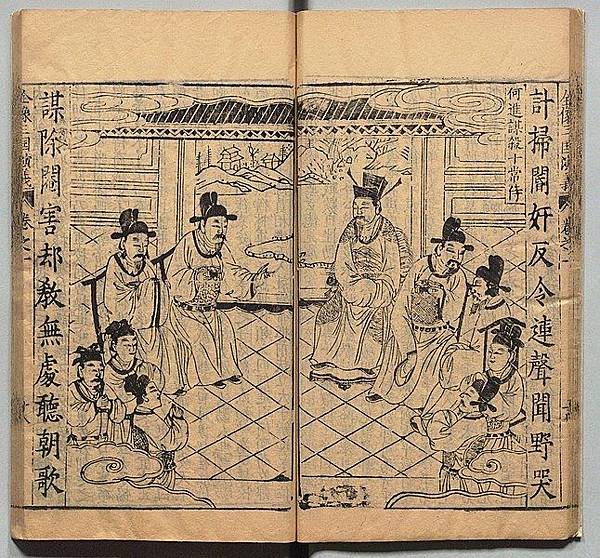 全像三國演義 卷之一
計掃閹奸反令連聲聞野哭
何進謀殺十常侍
謀除閹害却教無處聽朝歌
全像三國演義 卷之一